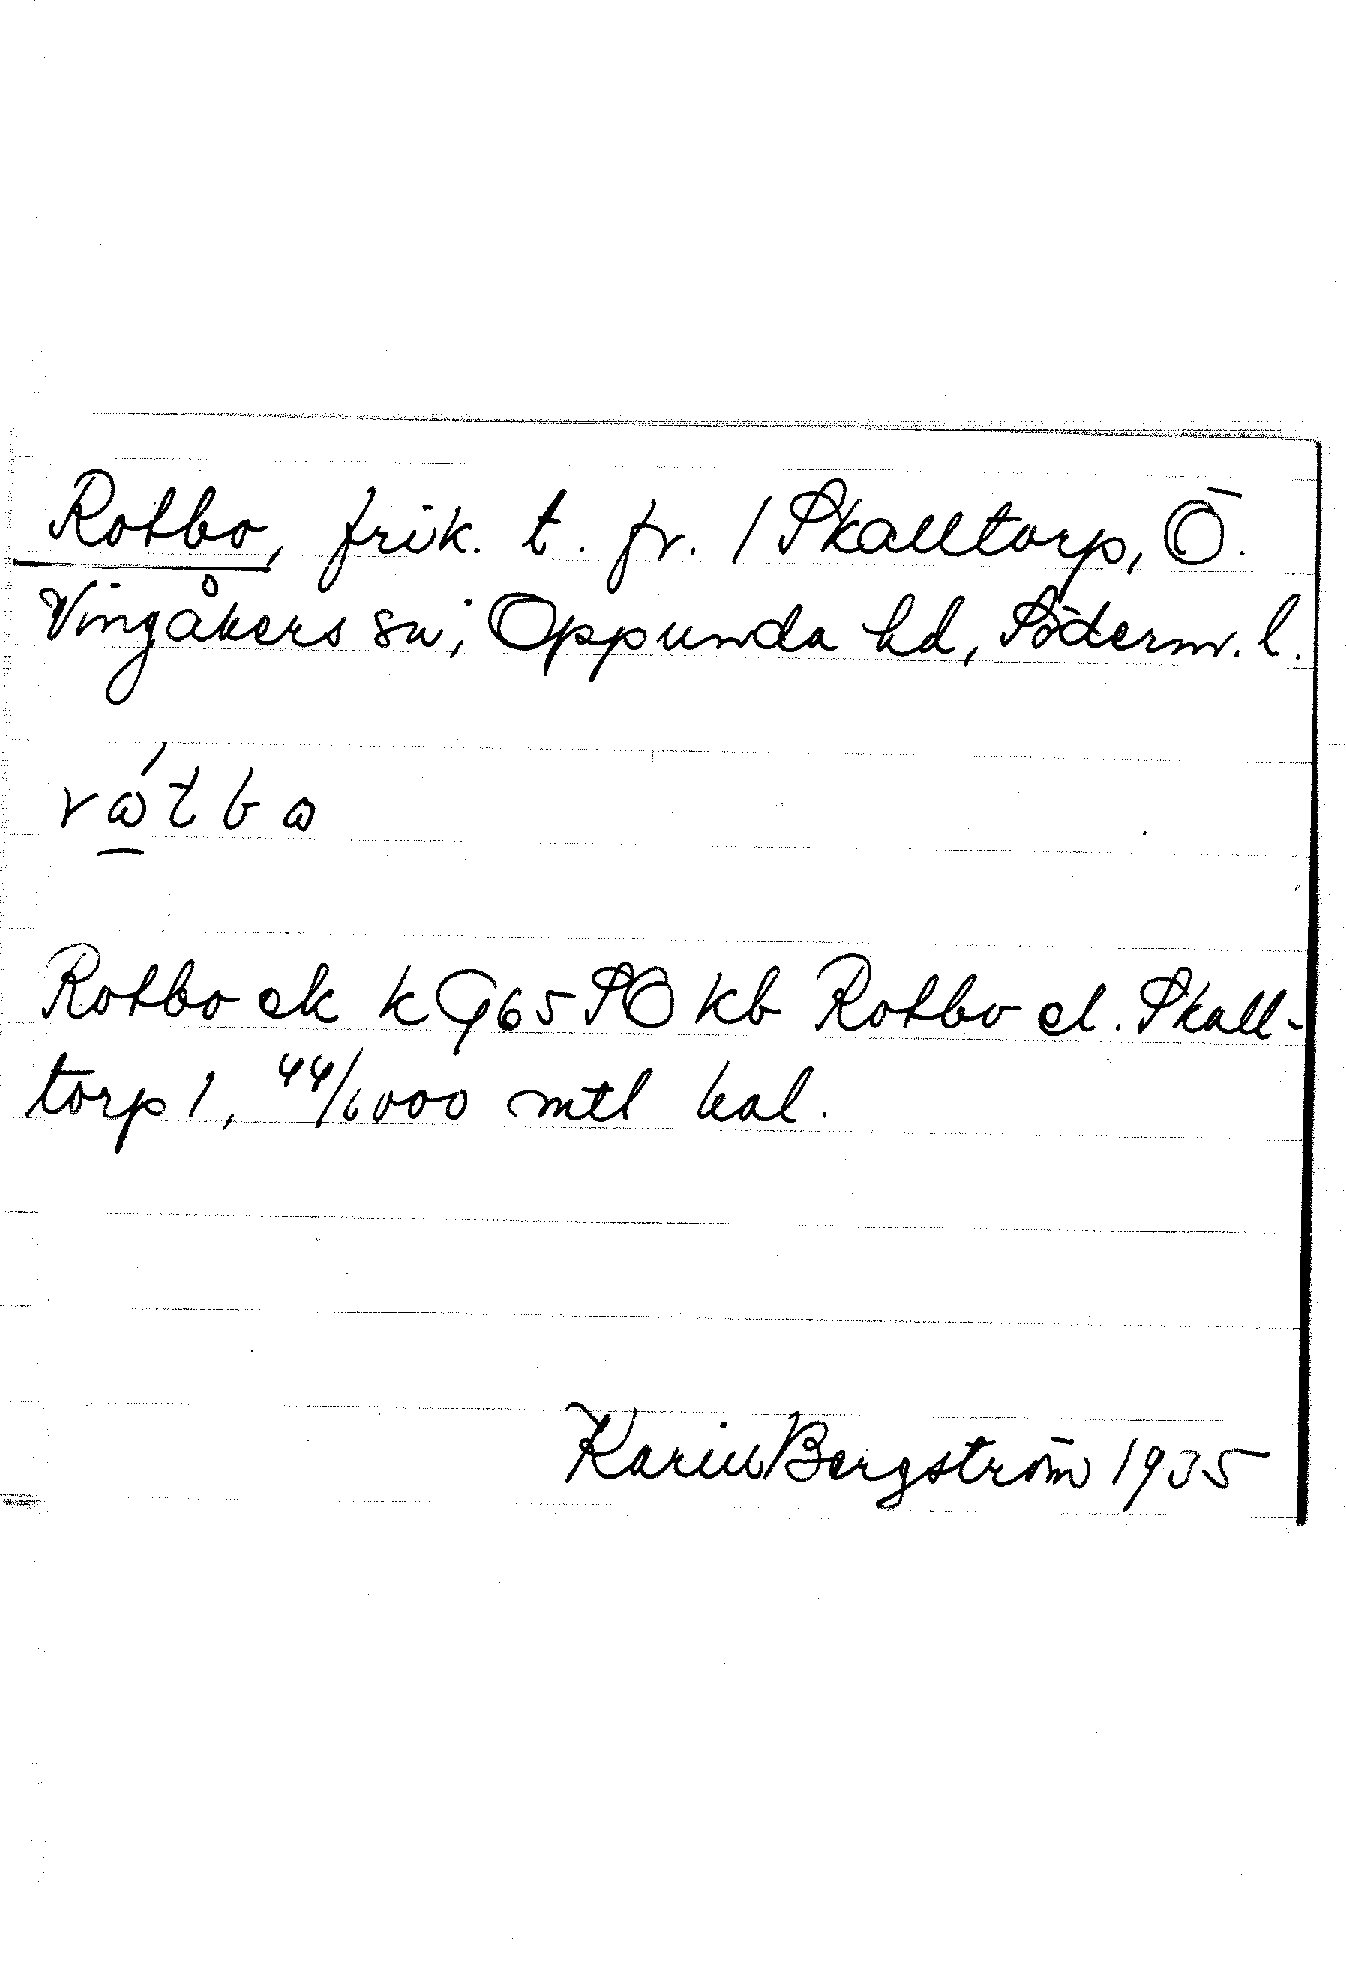 Rotbo, frik. t. fr. 1 Skalltorp, Ö.
Vingåkers sn, Oppunda hd, Söderm. l.
Rotbo ek k G65SO kb Rotbo el. Skall-
torp 1, 44/6000 mtl kal.
Karin Bergström 1935